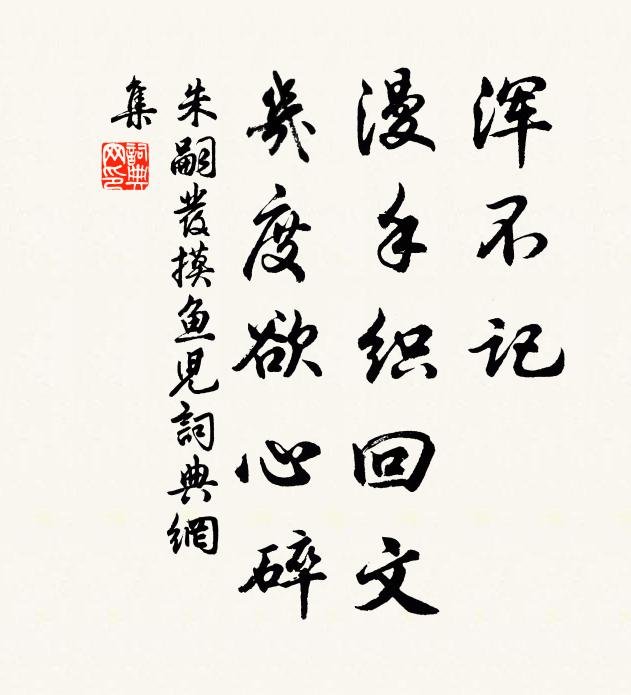 浑不记
漫手织回文
几度欲心碎
朱嗣发摸鱼儿词典网
集
词典网印